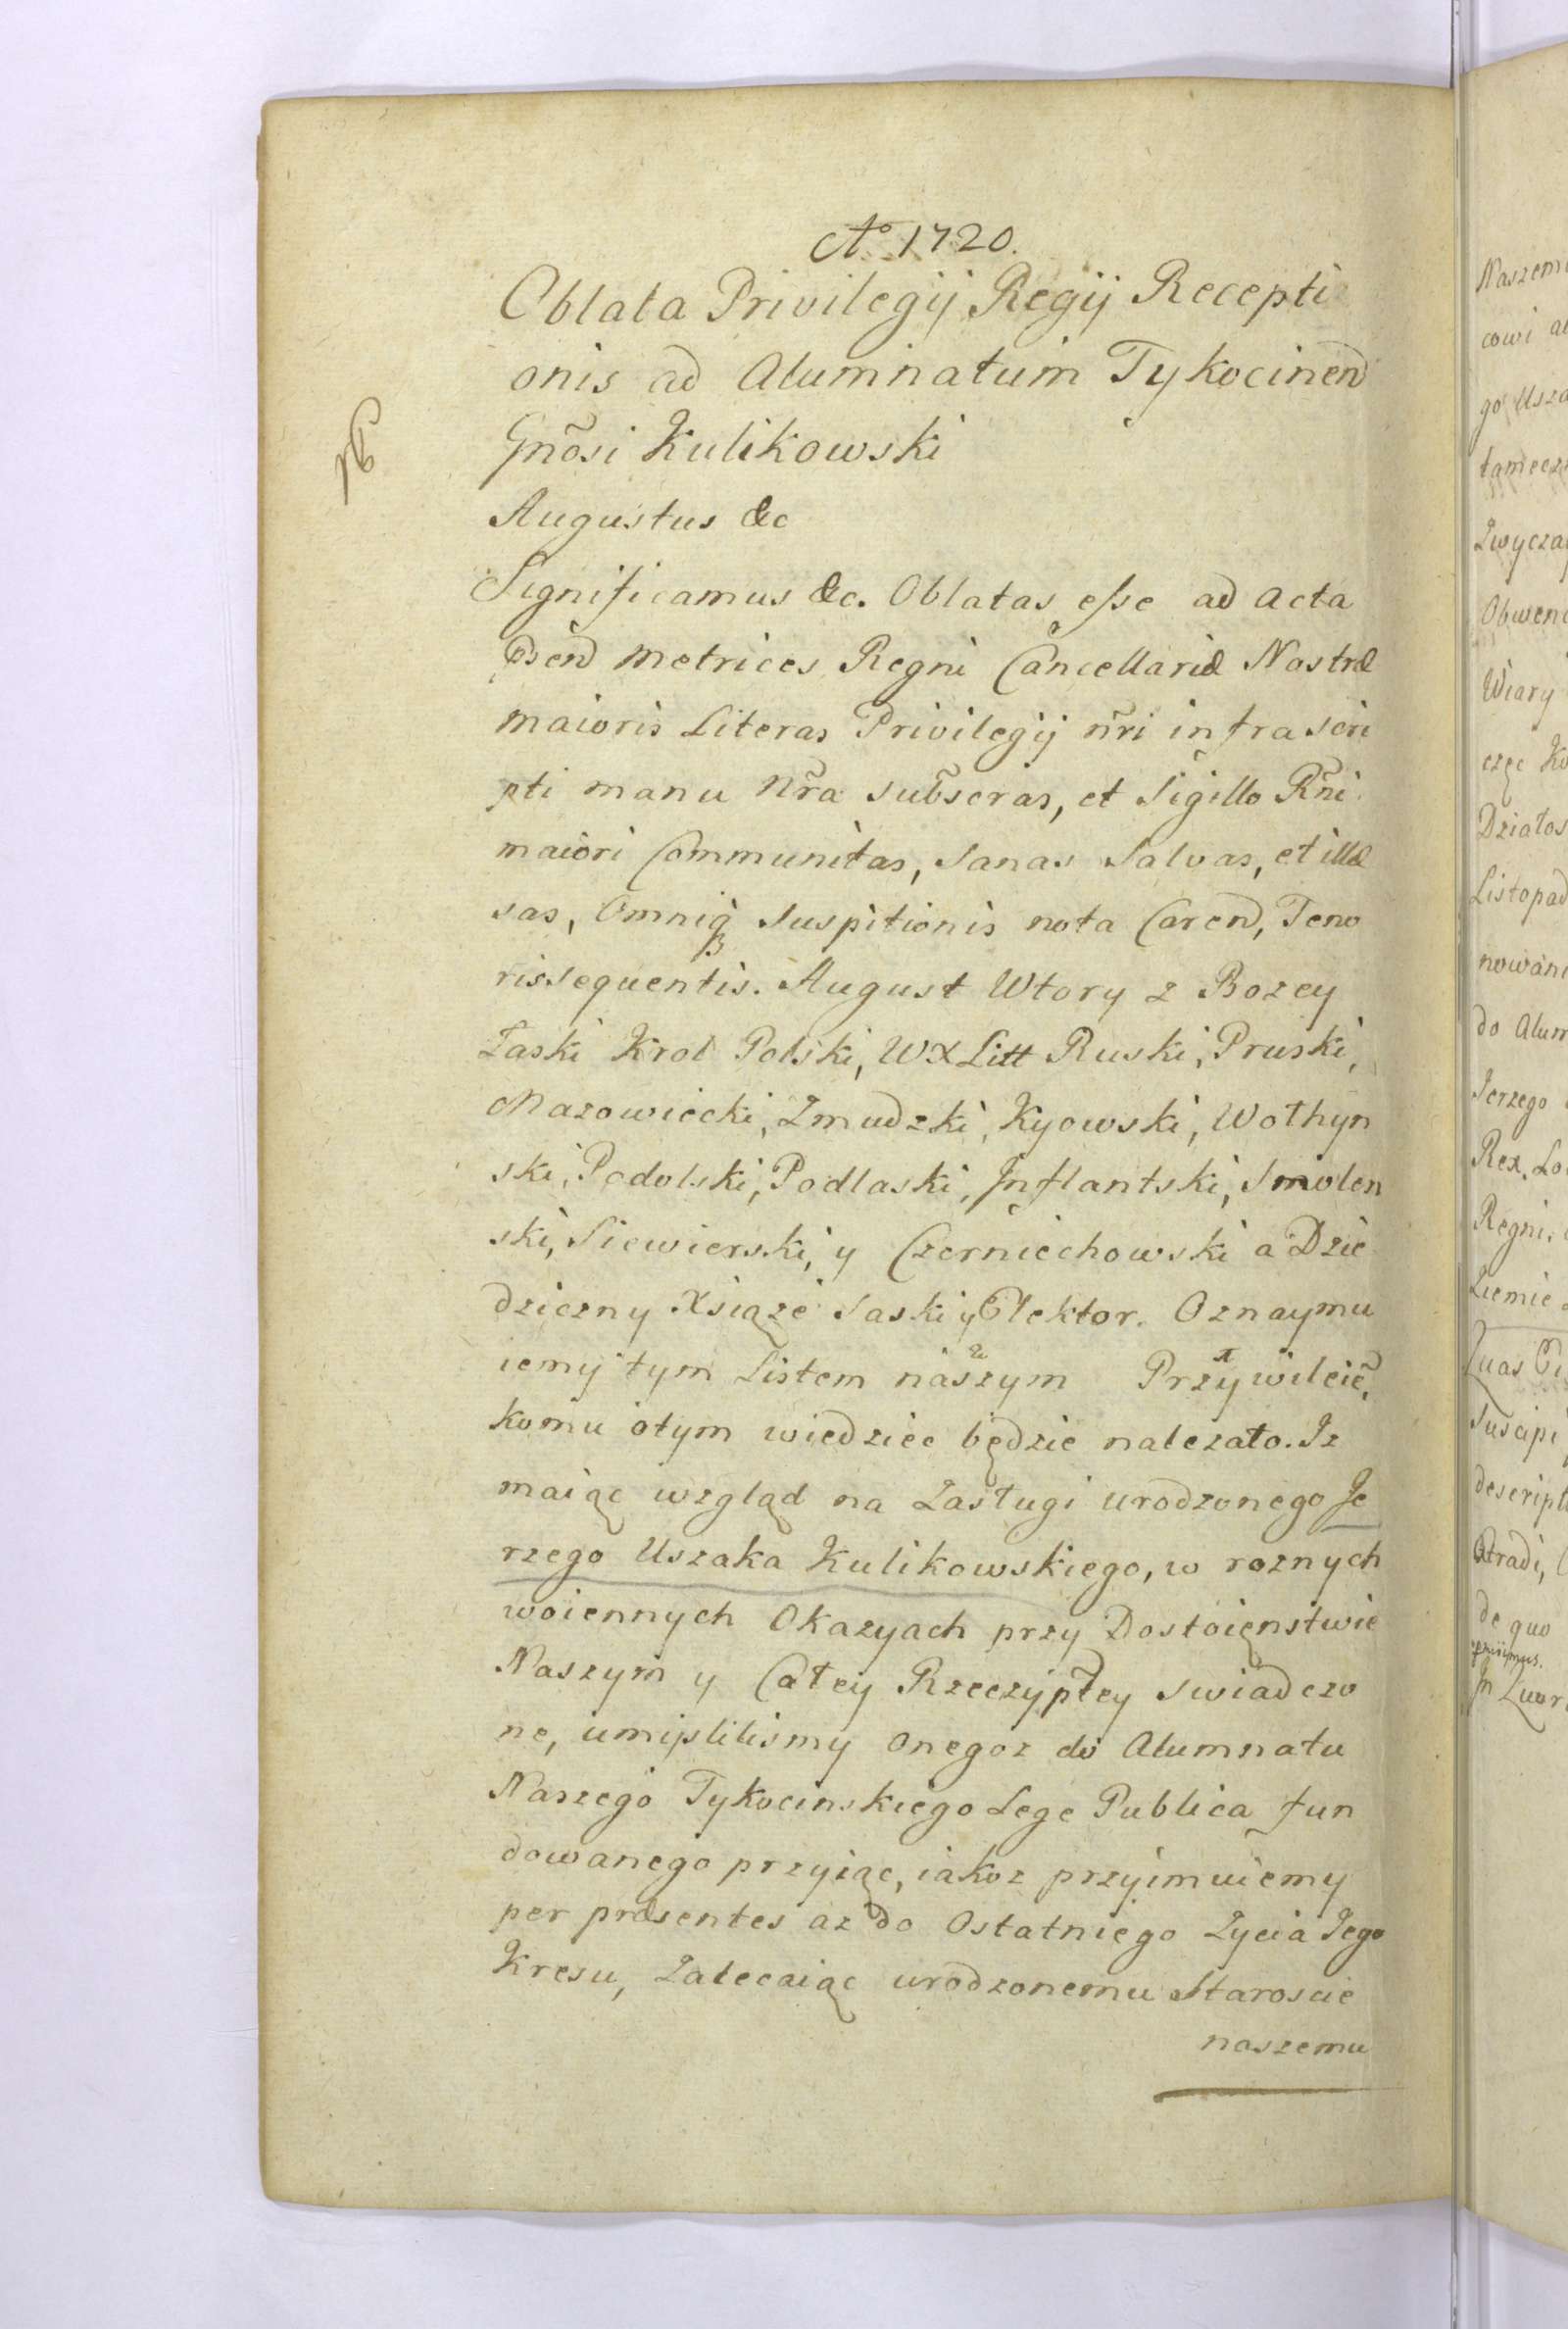 Ao 1720.
Oblata Privilegij Regij Recepti
onis ad Alumnatum Tykocinen
Gnosi Kulikowski
Augustus &c
Significamus &c. Oblatas esse ad acta
psen Metrices Regni Cancellariæ Nostræ
maioris Literas Privilegij nri infra scri
pti manu nra subscras, et Sigillo Rni
maiori Communitas, Sanas Salvas, et illæ
sas, Omniq Suspitionis nota Caren, Teno
ris sequentis. August Wtory z Bozey
Łaski Krol Polski, WX Litt Ruski, Pruski,
Mazowiecki, Zmudzki, Kyowski, Wołhyn
ski, Podolski, Podlaski, Inflantski, Smolen
ski, Siewierski, y Czerniechowski a Dzie
dziczny Xsiąze Saski y Elektor. Oznaymu
iemy tym Listem naszym Przywileie,
komu otym wiedziec będzie nalezało. Iz
maiąc wzgląd na Zasługi urodzonego Je
rzego Uszaka Kulikowskiego, w roznych
woiennych Okazyach przy Dostoięnstwie
Naszym y Całey Rzeczyptey Swiadczo
ne, umislilismy onegoz do Alumnatu
Naszego Tykocinskiego Lege Publica fun
dowanego przyiąc, iakoz przyimuiemy
per præsentes az do Ostatniego Zycia Jego
Kresu, Zalecaiąc urodzonemu Staroscie
naszemu
Naszem
cowi
go Usza
tamecz
Zwycza
Obwen
Wiary
czę Ko
Działos
Listopad
nowani
do Alum
Jerzego
Rex. Lo
Regni.
Ziemie
Quas
Suscipi
descript
Stradi,
de quo